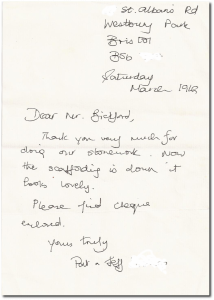 St. Albans Rd
Westbury Park
Bristol
BS6
Saturday
March 1942
Dear Mr. Bickford,
Thank you very much for
doing our stonework. Now
the scaffolding is down it
looks lovely.
Please find cheque
enclosed.
Yours truly
Pat & Jeff